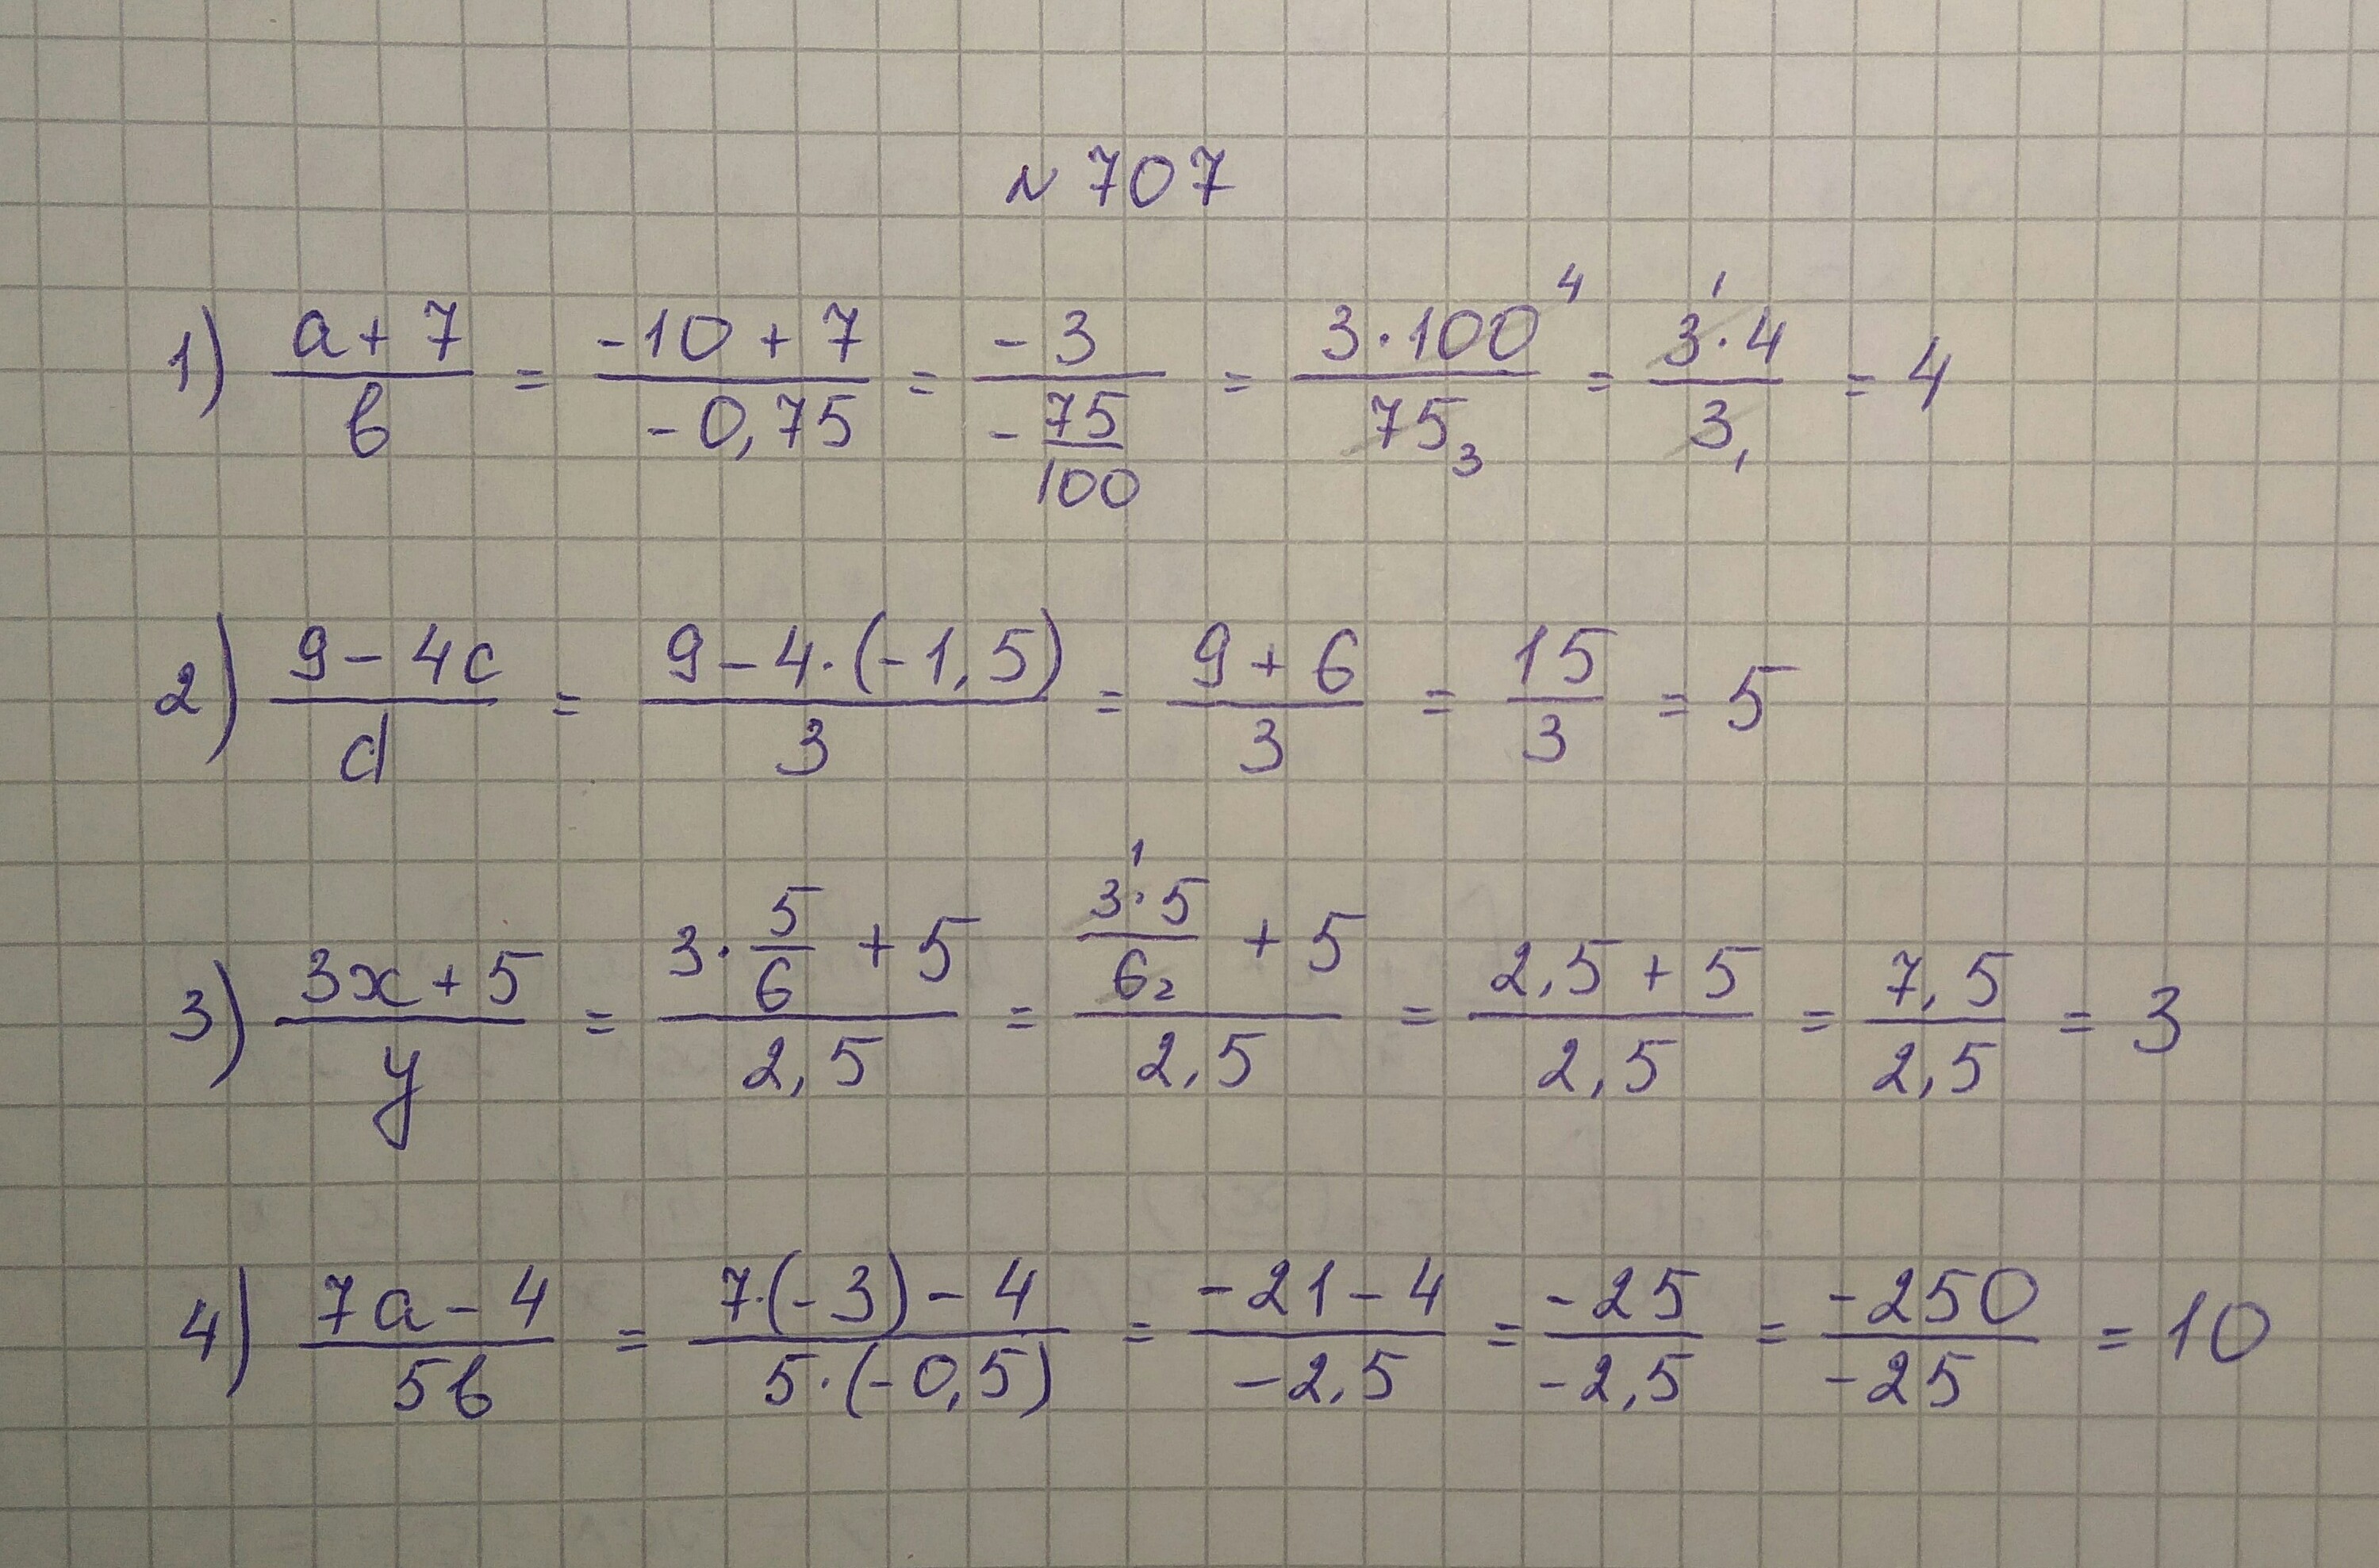 № 707
1) \frac{a+7}{b} = \frac{-10+7}{-0,75} = \frac{-3}{-\frac{75}{100}} = \frac{3 \cdot \cancel{100}^{4}}{\cancel{75}_{3}} = \frac{\cancel{3}^{1} \cdot 4}{\cancel{3}_{1}} = 4
2) \frac{9-4c}{d} = \frac{9-4 \cdot (-1,5)}{3} = \frac{9+6}{3} = \frac{15}{3} = 5
3) \frac{3x+5}{y} = \frac{3 \cdot \frac{5}{6} + 5}{2,5} = \frac{\frac{\cancel{3}^{1} \cdot 5}{\cancel{6}_{2}} + 5}{2,5} = \frac{2,5+5}{2,5} = \frac{7,5}{2,5} = 3
4) \frac{7a-4}{5b} = \frac{7 \cdot (-3) - 4}{5 \cdot (-0,5)} = \frac{-21-4}{-2,5} = \frac{-25}{-2,5} = \frac{-250}{-25} = 10